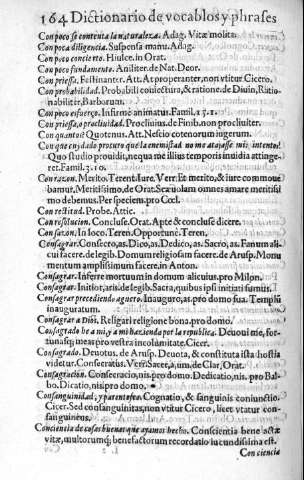 164 Dictionario de vocablos y phrases
Con poco se contenta la naturaleza. Adag. Vitæ molita.
Con poca diligencia. Suspensa manu. Adag.
Con poco concierto. Hiulce. in Orat.
Con poco fundamento. Aniliter. de Nat. Deor.
Con priessa. Festinanter. Att. At properanter, non vtitur Cicero.
Con probabilidad. Probabili coniectura, & ratione. de Diuin, Ratio-
nabiliter, Barbarum.
Con poco esfuerço. Infirmè animatus. Famil. 15. 1.
Con priessa, o procliuidad. Procliuius. de Finib. non procliuiter.
Con quanto? Quotenus. Att. Nescio cotenorum iugerum.
Con que cuydado procuro que la enemistad no me atajasse mis intentos!
Quo studio prouidit, ne qua me illius temporis inuidia attinge-
ret. Famil. 3. 10.
Con razon. Meritò. Terent. Iure. Verr. Et meritò, & iure commoue
bamur, Meritissimò. de Orat. Sea uolam omnes amare meritissi
mò debemus. Per speciem. pro Cœl.
Con rectitud. Probe. Attic.
Con resolucion. Concluse. Orat. Apte & concluse dicere.
Con sazon. In loco. Teren. Opportunè. Teren.
Consagrar. Consecro, as. Dico, as. Dedico, as. Sacro, as. Fanum alicui
facere. de legib. Domum religiosam facere. de Arusp. Monu
mentum amplissimum sacere. in Anton.
Consagrar. Inferre mortuum in domum alicuius. pro Milon.
Consagrar. Initior, aris. de legib. Sacra, quibus ipsi initiati sumus.
Consagrar precediendo aguero. Inauguro, as. pro domo sua. Templũ
inauguratum.
Consagrar a Dios. Religari religione bona. pro domo.
Consagrado he a mi, y a mi hazienda por la republica. Deuoui me, for-
tunasq; meas pro vestra incolumitate. Cicer.
Consagrado. Deuotus. de Arusp. Deuota, & constituta ista hostia
videtur. Consecratus. Verr. Sacer, a, um. de Clar. Orat.
Consagracion. Consecratio, nis. pro domo. Dedicatio, nis. pro Bal-
bo. Dicatio, nis. pro domo.
Consanguinidad, y parentesco. Cognatio, & sanguinis coniunctio.
Cicer. Sed consanguinitas, non vtitur Cicero, licet vtatur con-
sanguineus.
Conciencia de cosas buenas que ayamos hecho. Conscientia bene actæ
vitæ, multorumq; benefactorum recordatio iucundissima est.
Con ciencia